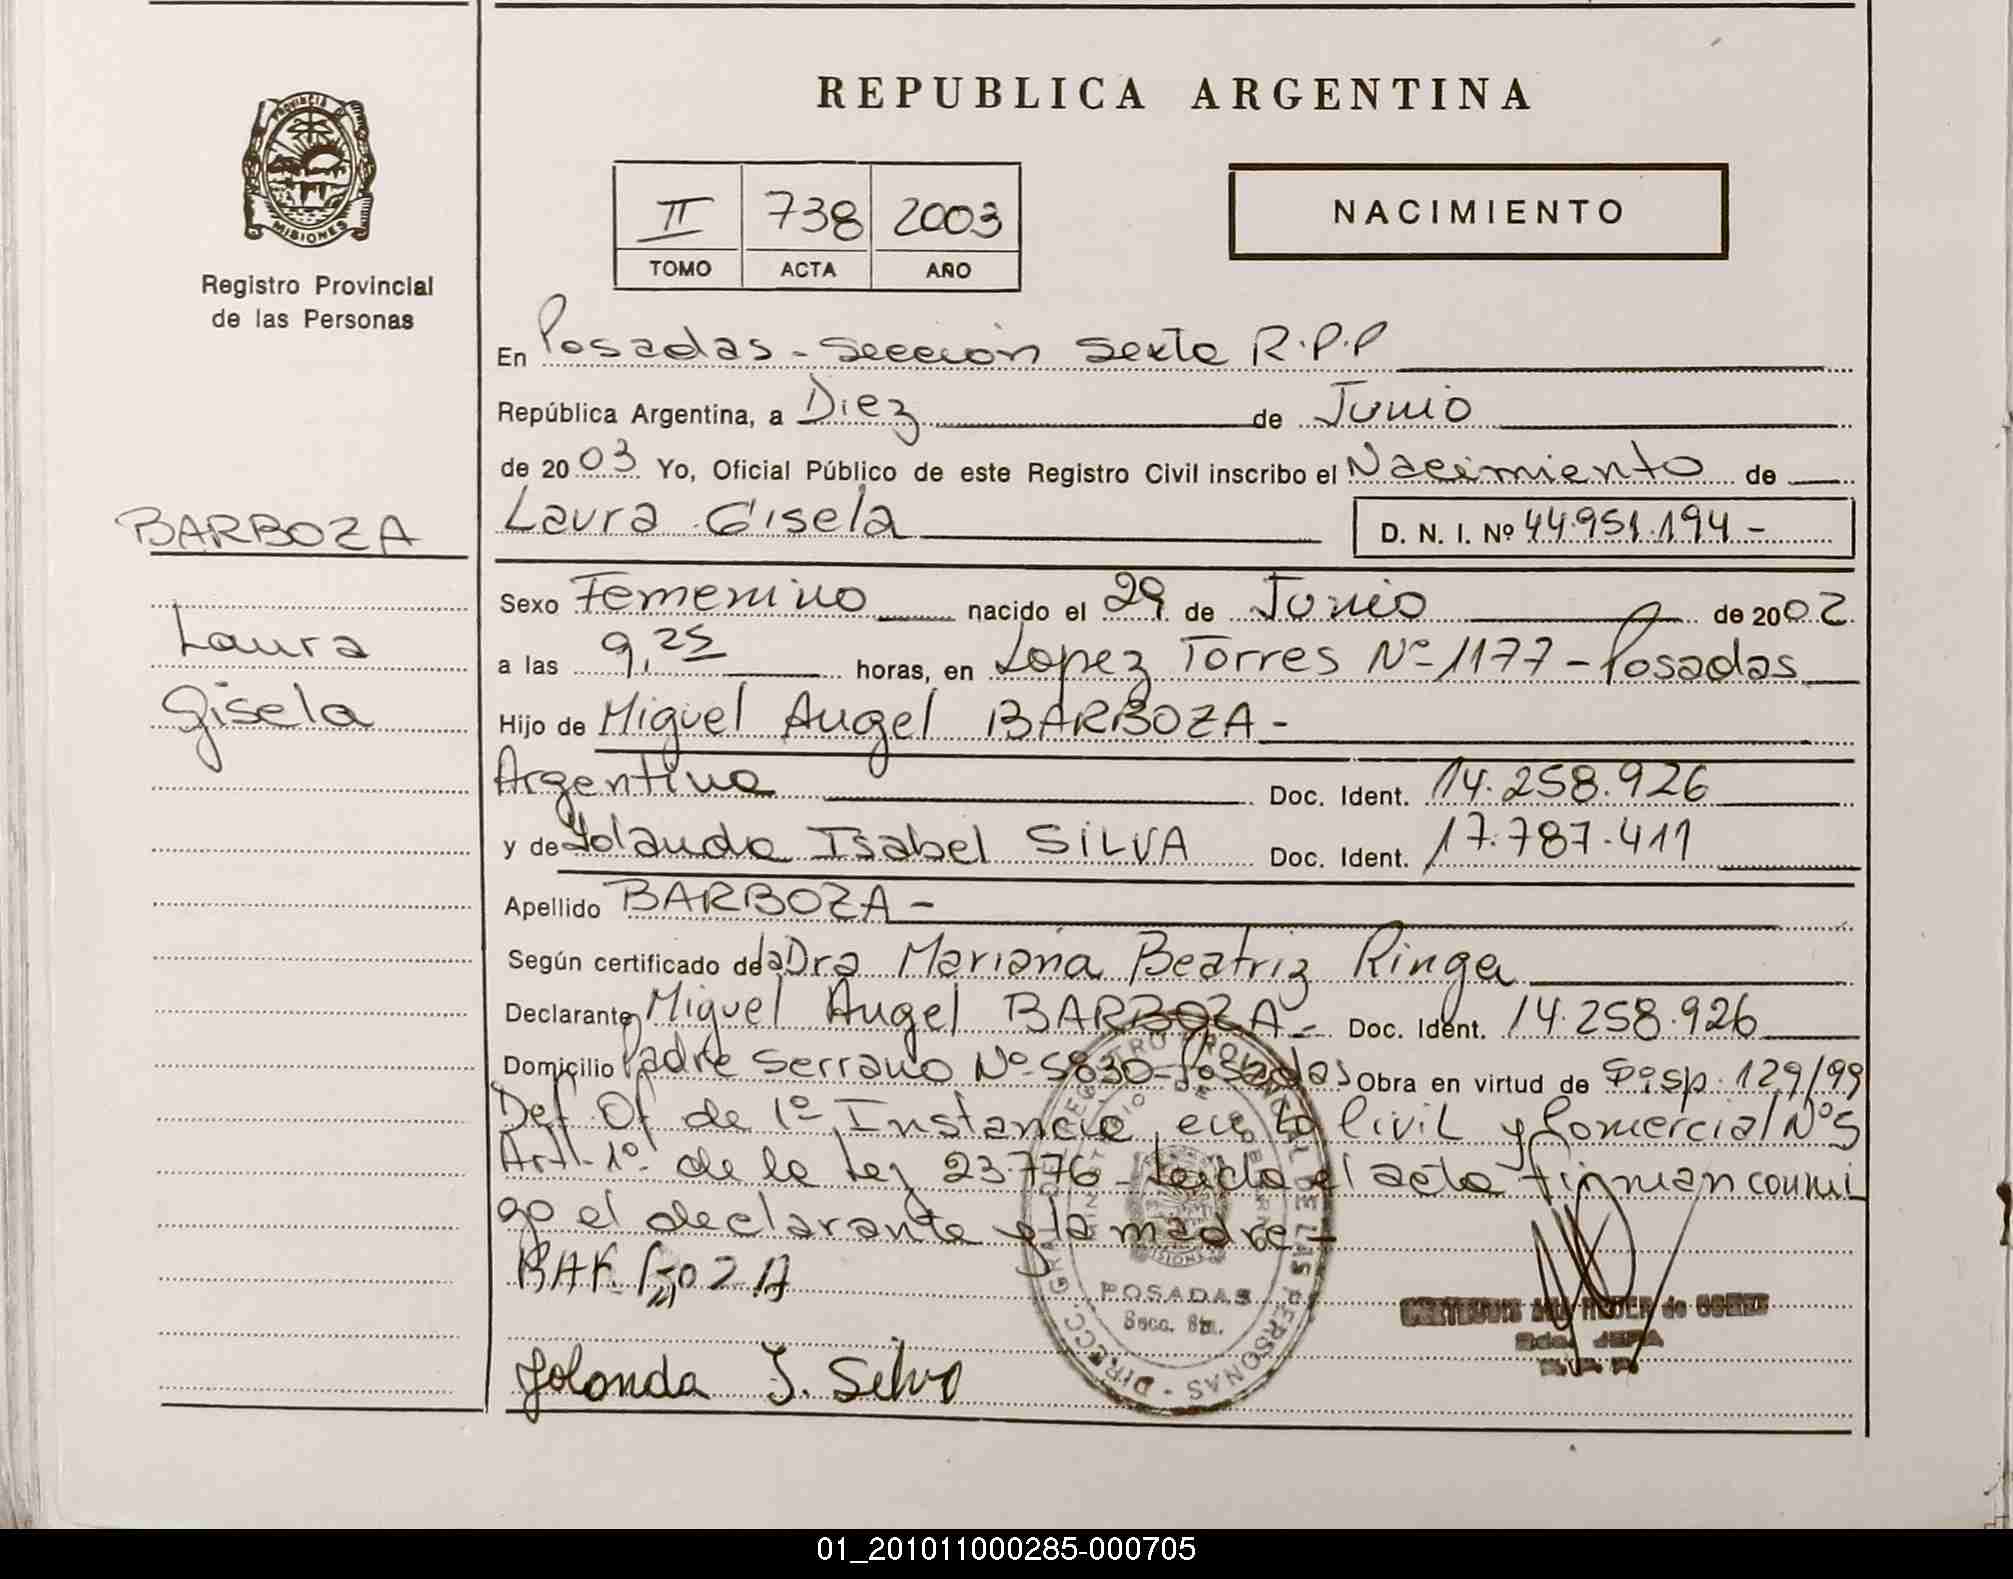 PROVINCIA DE
MISIONES
Registro Provincial
de las Personas
BARBOZA
Laura
Gisela
REPUBLICA ARGENTINA
II 738 2003
TOMO ACTA AÑO
NACIMIENTO
En Posadas - Sección Sexta R.P.P
República Argentina, a Diez de Junio
de 2003 Yo, Oficial Público de este Registro Civil inscribo el Nacimiento de
Laura Gisela D. N. I. Nº 44.951.194 -
Sexo Femenino nacido el 29 de Junio de 2002
a las 9,25 horas, en Lopez Torres Nº 1177 - Posadas
Hijo de Miguel Angel BARBOZA -
Argentina Doc. Ident. 14.258.926
y de Yolanda Isabel SILVA Doc. Ident. 17.787.411
Apellido BARBOZA -
Según certificado de la Dra Mariana Beatriz Ringa
Declarante Miguel Angel BARBOZA - Doc. Ident. 14.258.926
Domicilio Padre Serrano Nº 5830 - Posadas Obra en virtud de Disp. 129/99
Def. Of. de 1º Instancia en lo Civil y Comercial Nº 5
Art. 1º de la Ley 23.776 - Leida el acta firman conmi
go el declarante y la madre -
BARBOZA
Yolanda I. Silva
DIRECC. GRAL. DEL REGISTRO PROVINCIAL DE LAS PERSONAS
MINISTERIO DE GOBIERNO
POSADAS
Secc. 6ta.
de GOMEZ
JEFA
01_201011000285-000705